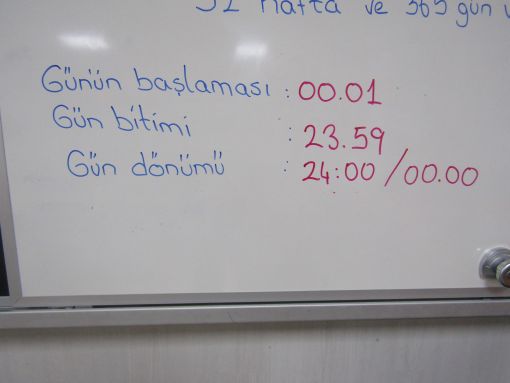 52 hafta ve 365 gün
Günün başlaması : 00.01
Gün bitimi : 23.59
Gün dönümü : 24:00 / 00.00